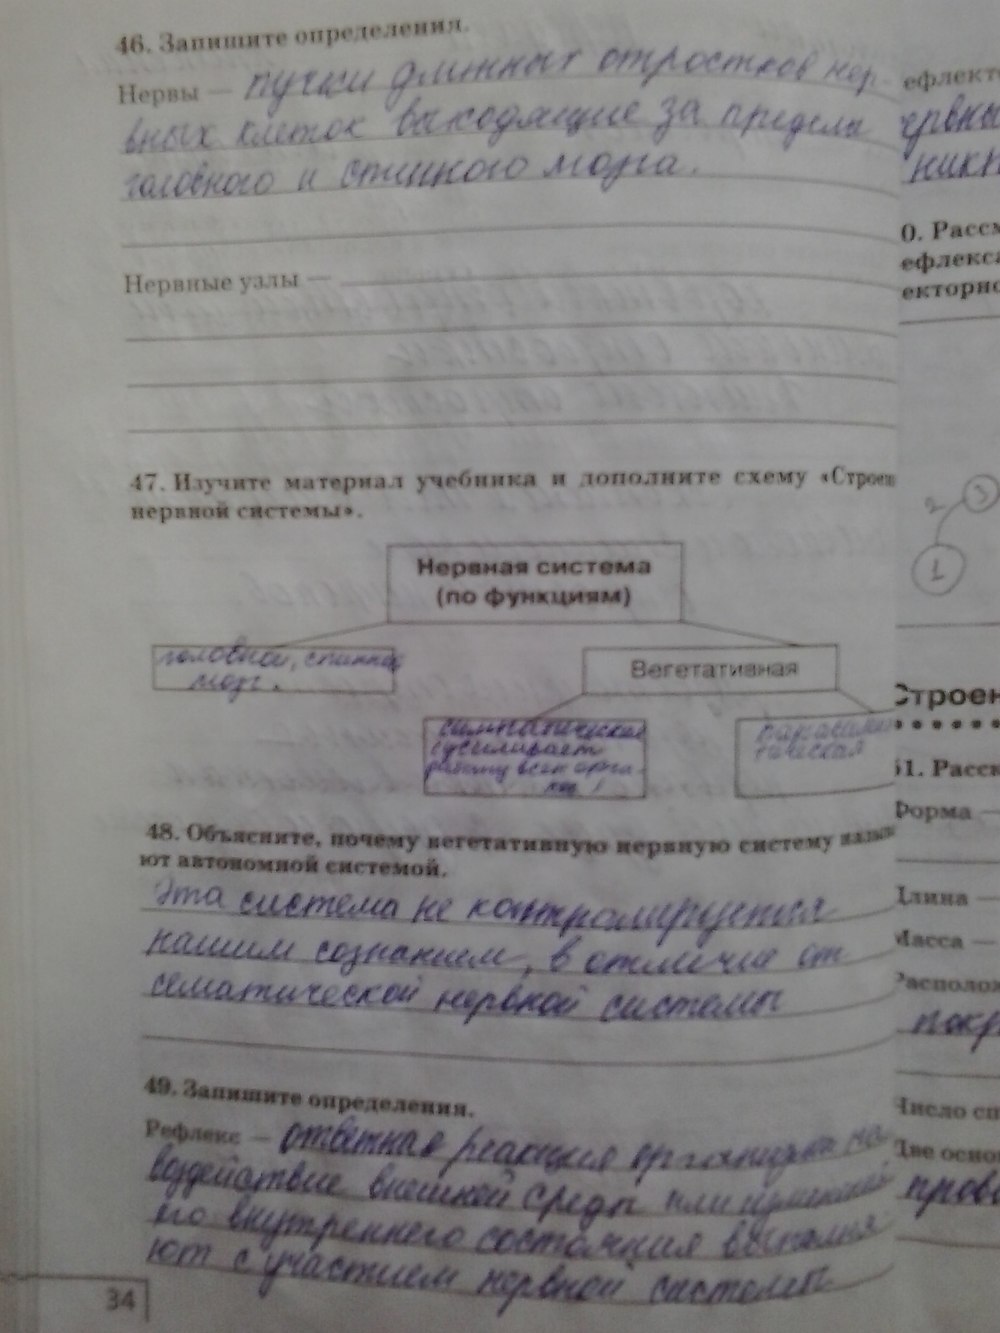 46. Запишите определения.
Нервы — пучки длинных отростков нер-
вных клеток выходящие за придела
головного и спинного мозга.
Нервные узлы —
47. Изучите материал учебника и дополните схему «Строен
нервной системы».
Нервная система
(по функциям)
головной, спинной
мозг.
Вегетативная
симпатическая
(усиливает
работу всех орга-
парасимпа
тическая
48. Объясните, почему вегетативную нервную систему назыв
ют автономной системой.
Эта система не контролируется
нашим сознанием, в отличие от
сематической нервной системы
49. Запишите определения.
Рефлекс — ответная реакция организма на
воздействие внешней среды или изменения
его внутреннего состояния выполня
ют с участием нервной системы
34
ефлекто
ервны
0. Рассм
ефлекса
екторно
2
3
1
Строен
51. Расск
Форма —
Длина —
Масса —
Располож
покр
Число сп
Две основ
прово